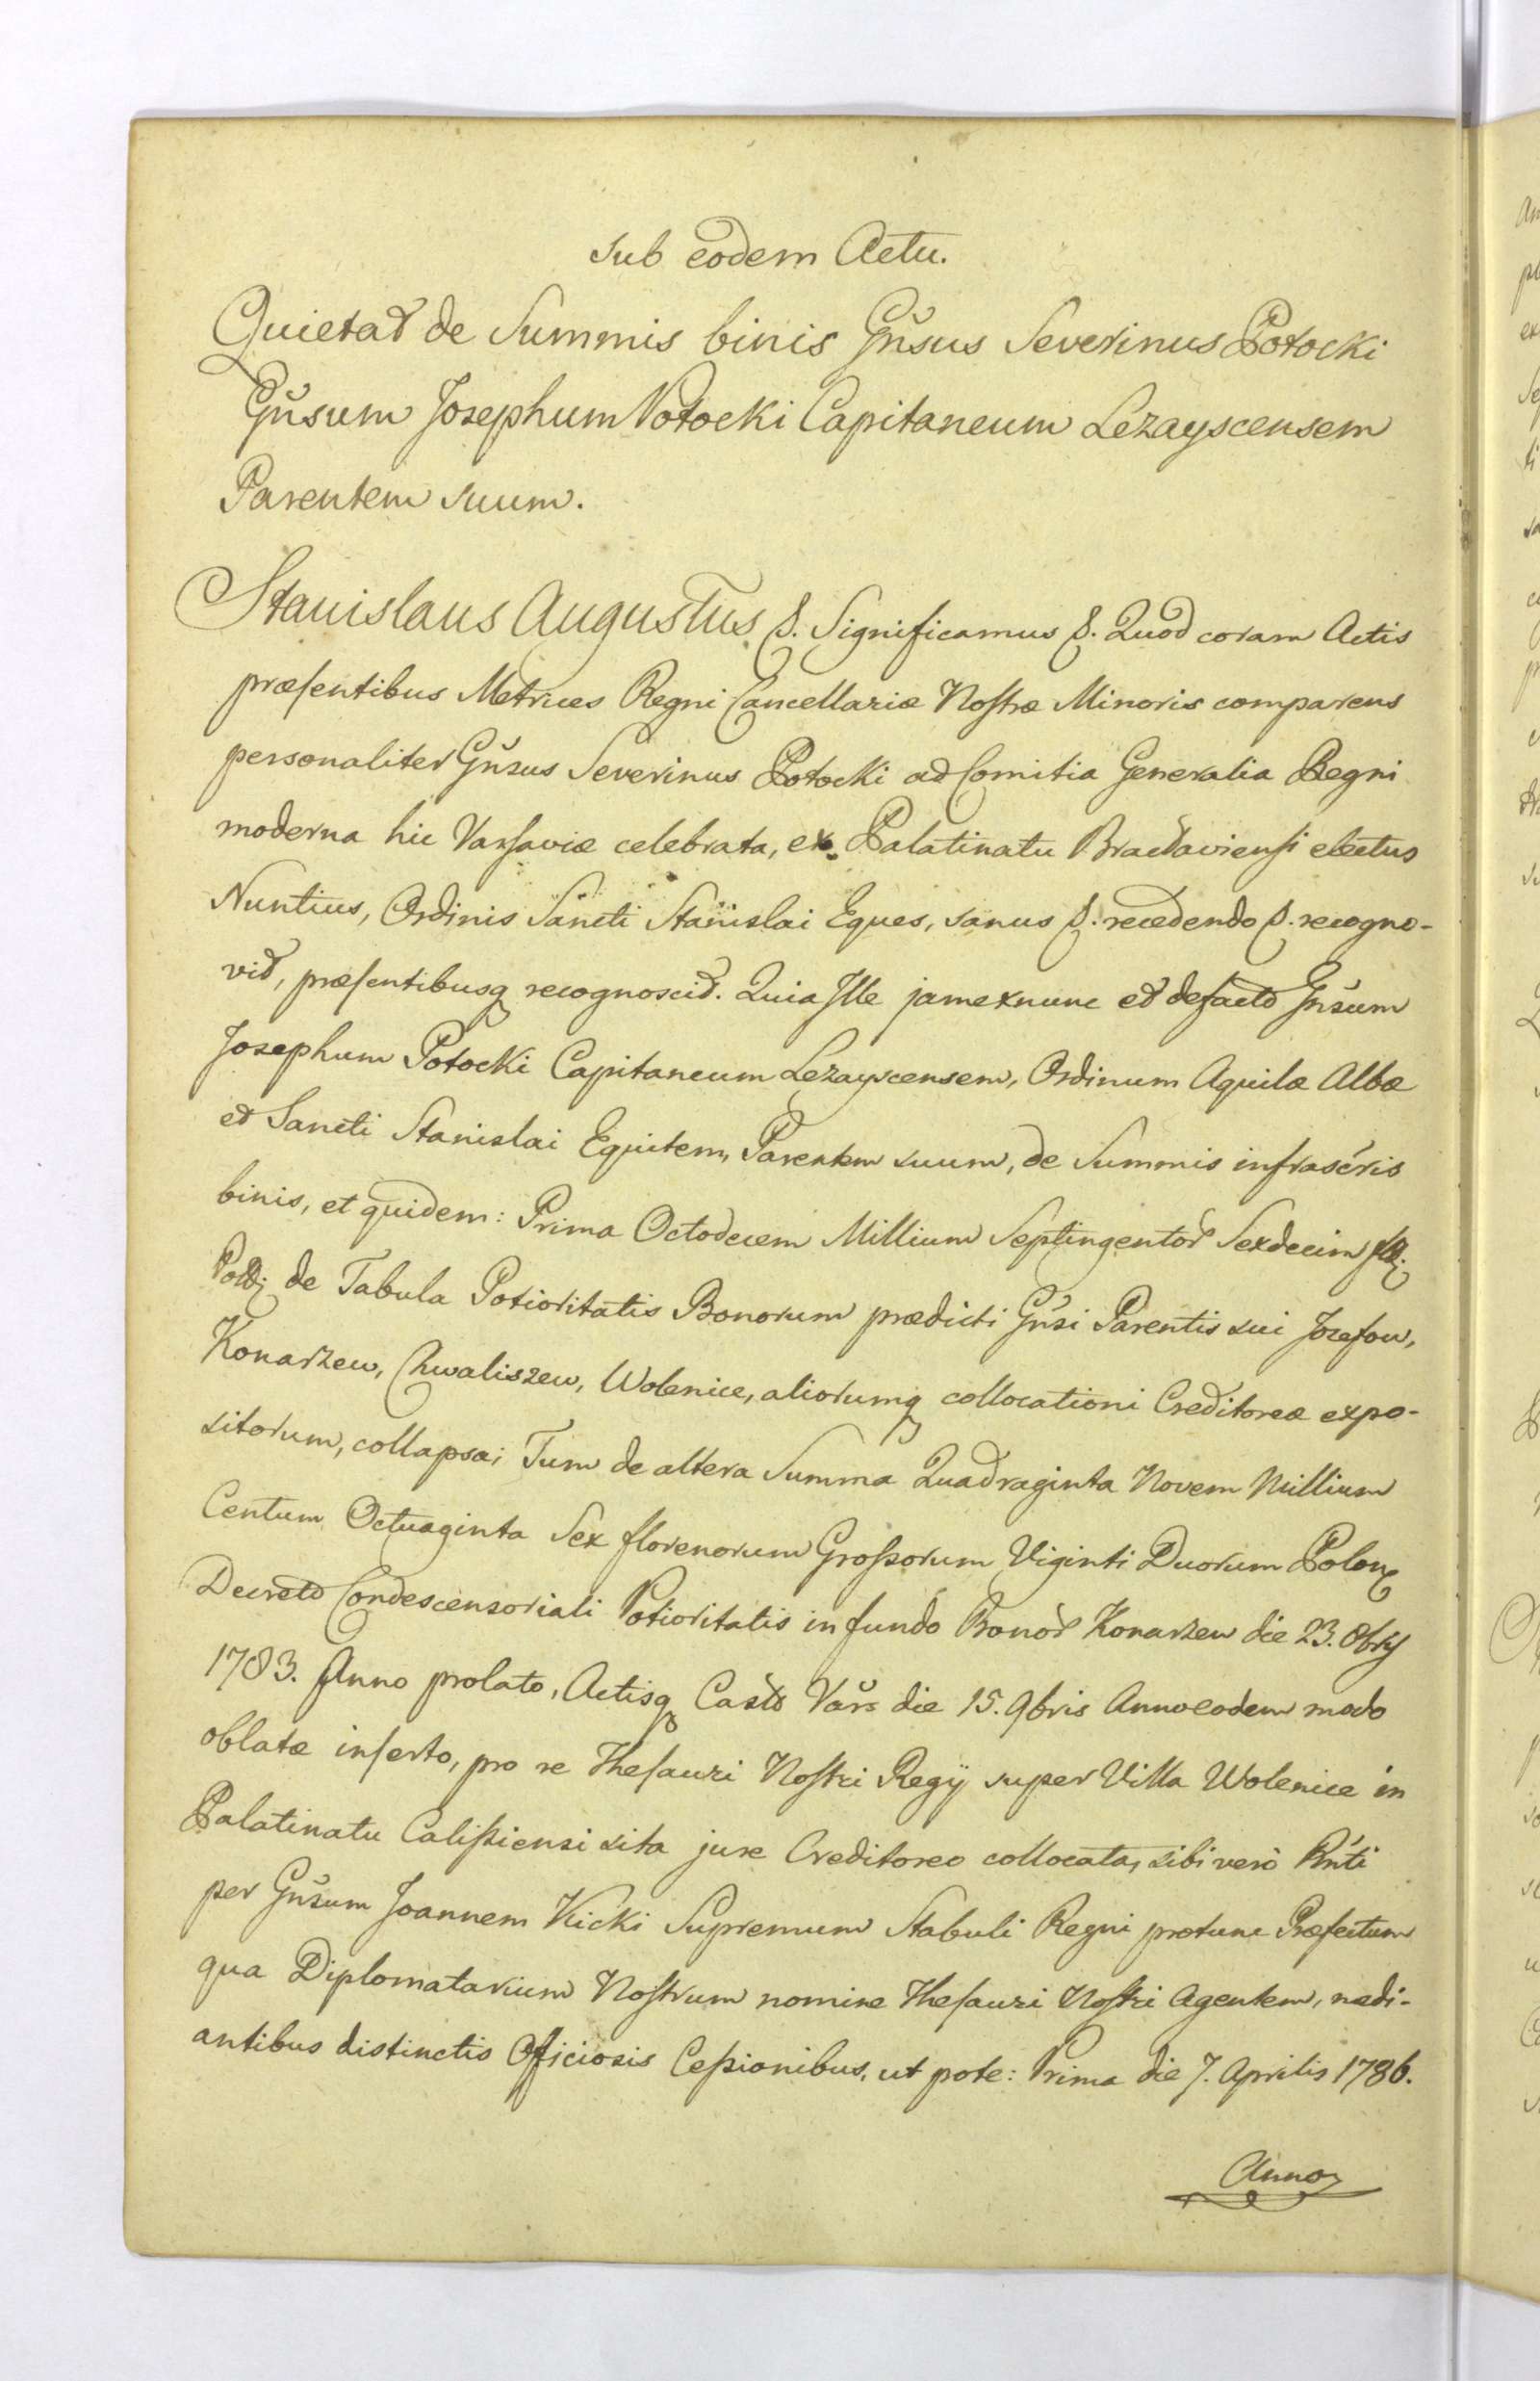 sub eodem Actu.
Quietat de Summis binis Gnsus Severinus Potocki
Gnsum Josephum Potocki Capitaneum Lezayscensem
Parentem suum.
Stanislaus Augustus &. Significamus &. Quod coram Actis
præsentibus Metrices Regni Cancellariæ Nostræ Minoris comparens
personaliter Gnsus Severinus Potocki ad Comitia Generalia Regni
moderna hic Varsaviæ celebrata, ex Palatinatu Braclaviensi electus
Nuntius, Ordinis Sancti Stanislai Eques, sanus &. recedendo &. recogno-
vit, præsentibusq recognoscit. Quia Ille jam exnunc et defacto Gnsum
Josephum Potocki Capitaneum Lezayscensem, Ordinum Aquilæ Albæ
et Sancti Stanislai Equitem, Parentem suum, de Summis infrascris
binis, et quidem: Prima Octodecem Millium Septingentor Sexdecim
de Tabula Potioritatis Bonorum prædicti Gnsi Parentis sui Jozefow,
Konarzew, Chwaliszew, Wolenice, aliorumq collocationi Creditoreæ expo-
sitorum, collapsa; Tum de altera Summa Quadraginta Novem Millium
Centum Octuaginta Sex florenorum Grossorum Viginti Duorum Polon
Decreto Condescensoriali Potioritatis in fundo Bonor Konarzew die 23. 8bris
1783. Anno prolato, Actisq Castr Vars die 15. 9bris Anno eodem modo
oblatæ inserto, pro re Thesauri Nostri Regij super Villa Wolenice in
Palatinatu Calissiensi sita jure Creditoreo collocata, sibi verò Rnti
per Gnsum Joannem Kicki Supremum Stabuli Regni protunc Præfectum
qua Diplomatarium Nostrum nomine Thesauri Nostri Agentem, medi-
antibus distinctis Officiosis Cessionibus, ut pote: Prima die 7. Aprilis 1786.
Anno